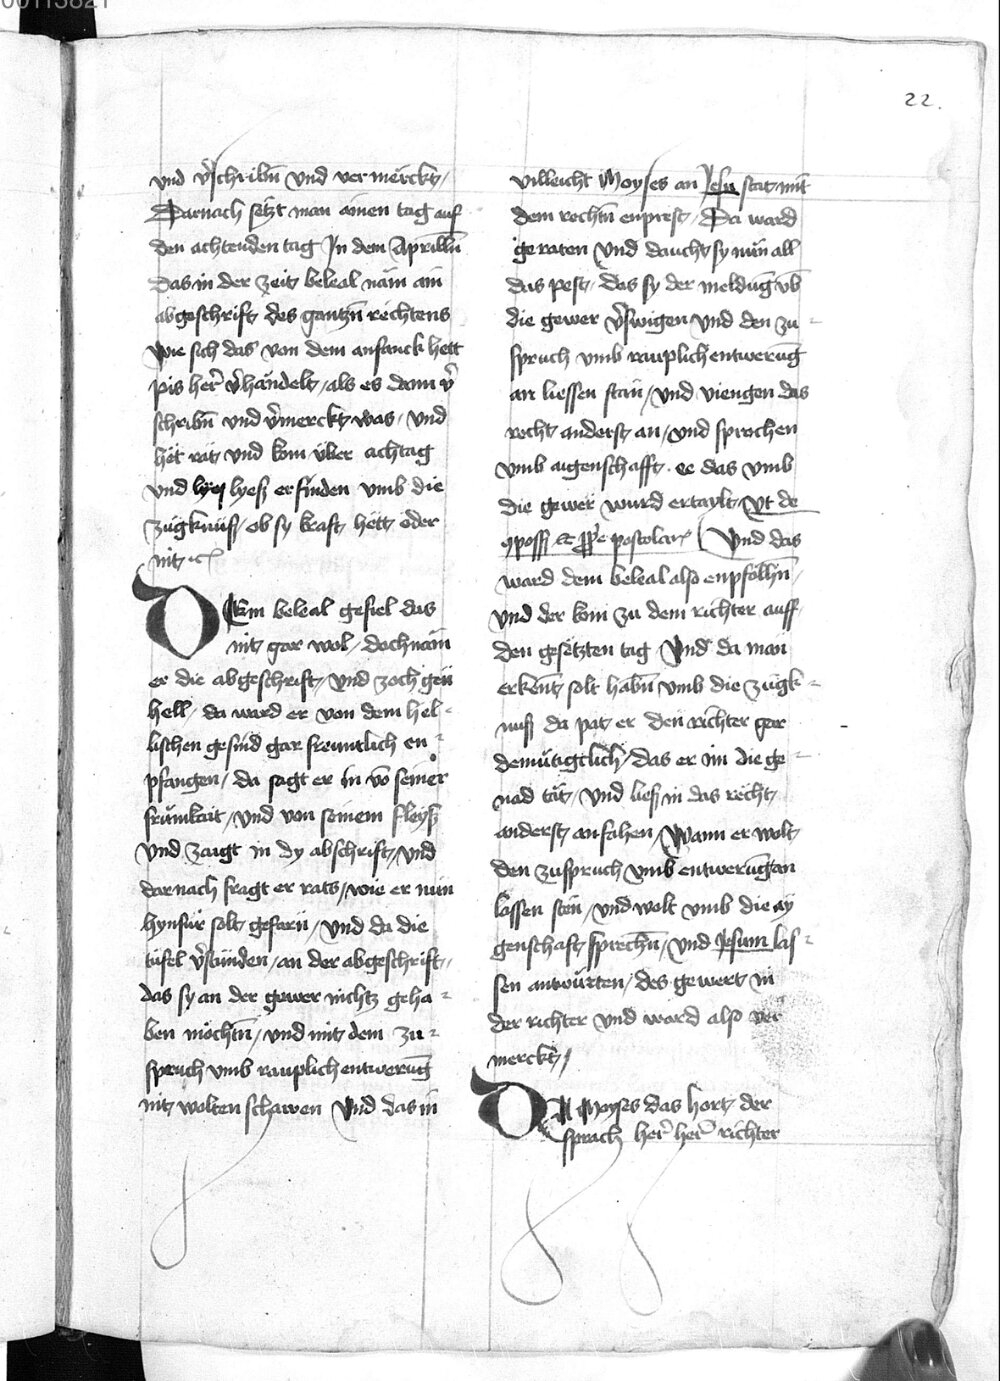 22.
und v̄schribn̄ vnd vermerckt /
Darnach setzt man ainen tag auf
den achtenden tag In dem Aprilln̄
das in der zeit beleal näm ain
abgeschrift des gantzn̄ rechtens
wie sich das von dem anfanck hett
pis her v̄händelt / als es dann v̄
schribn̄ und v̄merckt was / vnd
het rät vnd kom über achtag
vnd lyeß erfinden vmb die
zügknuß / ob sy kraft hett oder
nit
DEm beleal gefiel das
nit gar wol / doch näm
er die abgeschrift / vnd zoch gen
hell / da ward er von dem hel-
lischen gesind gar freuntlich en-
pfangen / da sagt er in vō seiner
frümkait / vnd von seinem fleyß
vnd zaigt in dy abschrift / vnd
darnach fragt er rats / wie er nün
hynfür solt gefarn / vnd da die
tüfel v̄stünden / an der abgeschrift /
das sy an der gewer nichtz geha-
ben möchtn̄ / vnd mit dem zu-
spruch vmb rauplich entwerūg
nit wolten schawen Vnd das in
villeicht Moyses an Jesu stat mit
dem rechtn̄ enprest / Da ward
geraten vnd daucht sy nün all
das pest / das sy der meldūg vb
die gewer v̄swigen vnd den zu-
spruch vmb rauplich entwerūg
an liessen stan / vnd viengen das
recht anderst an / vnd sprochen
vmb aigenschafft. ee das vmb
die gewer wurd ertaylt vt de
Vnd das
ward dem beleal also enpfolhn̄ /
vnd der kom zu dem richter auff
den gesetzten tag Vnd da man
erkent solt habn̄ vmb die zügk-
nuß da pat er den richter gar
demütigtlich / das er im die ge-
nad tät / vnd ließ in das recht
anderst anfahen / Wann er wolt
den zuspruch vmb entwerūg an
lassen sten / vnd wolt vmb die ay
genschaft sprechn̄ / vnd Jesum las-
sen antwürten / des gewert in
der richter vnd ward also ver
merckt /
DA Moyses das hort der
sprach her her richter